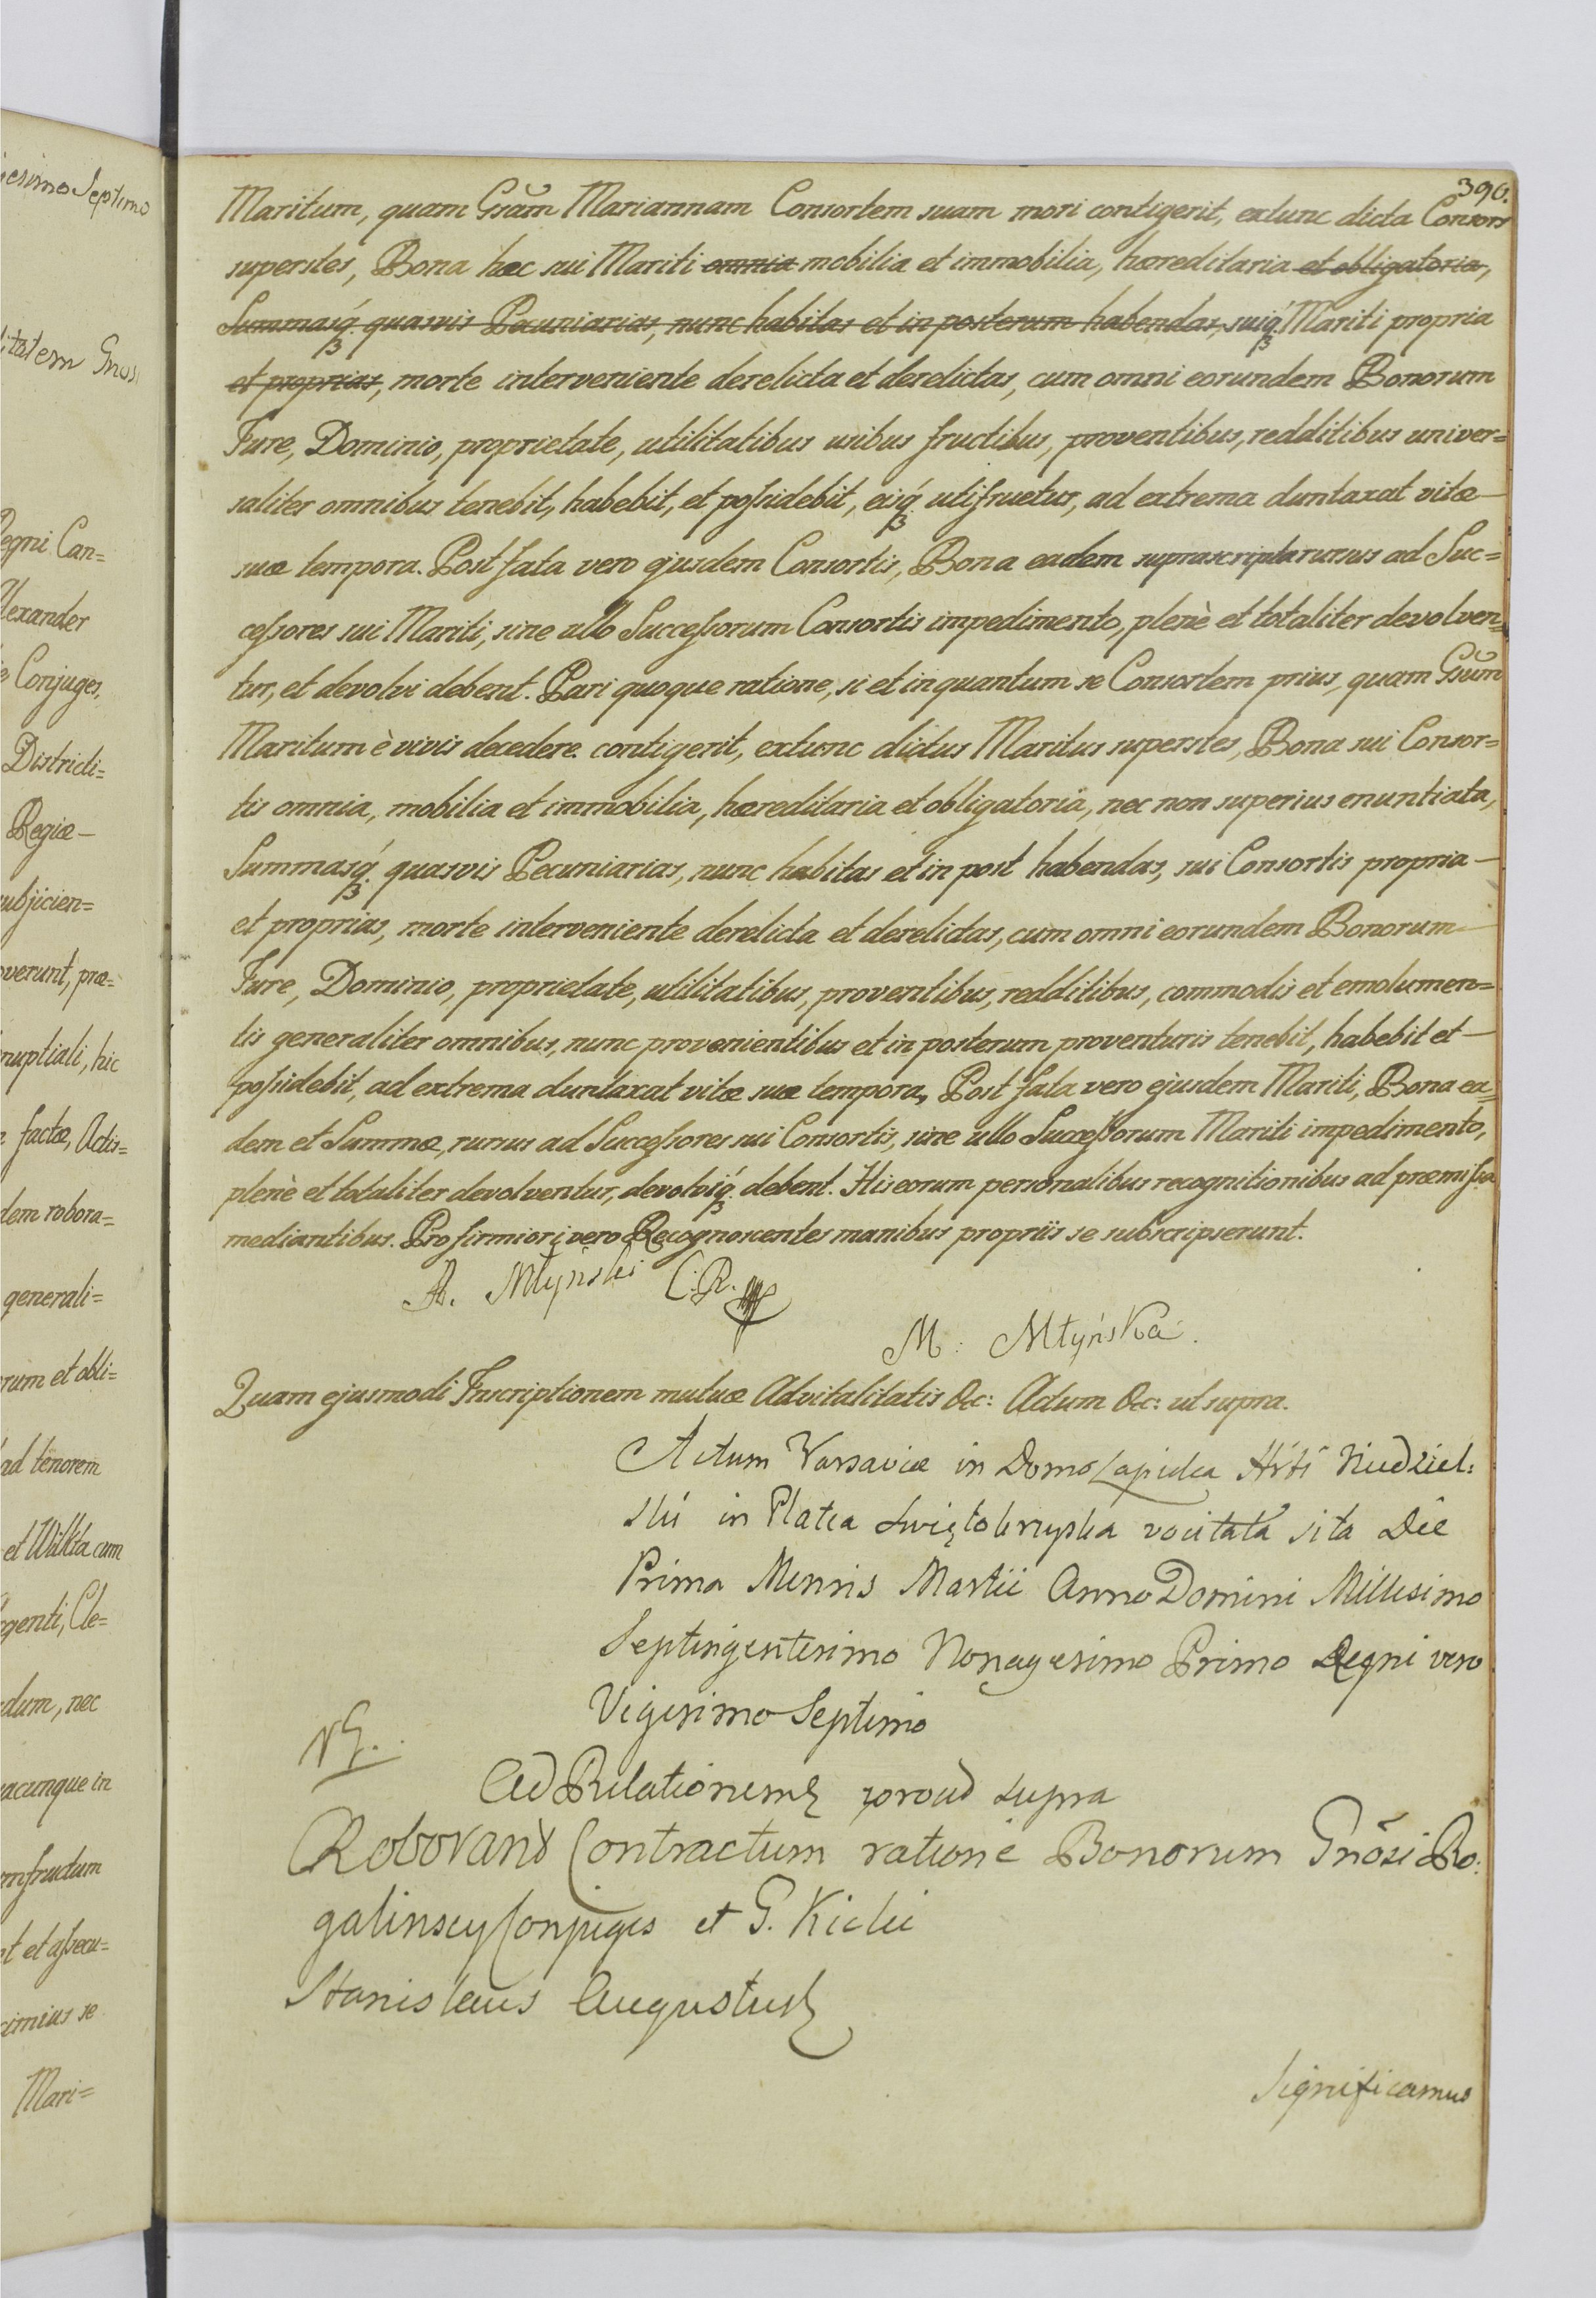 390.
Maritum, quam Gsãm Mariannam Consortem suam mori contigerit, extunc dicta Consors
superstes, Bona hæc sui Mariti omnia mobilia et immobilia, hæreditaria et obligatoria,
Summasq́ꝫ quasvis Pecuniarias, nunc habitas et in posterum habendas, suiq́ꝫ Mariti propria
et proprias, morte interveniente derelicta et derelictas, cum omni eorundem Bonorum
Jure, Dominio, proprietate, utilitatibus usibus fructibus, proventibus, redditibus univer=
saliter omnibus tenebit, habebit, et poſsidebit, eisq́ꝫ utifruetur, ad extrema duntaxat vitæ
suæ tempora. Post fata vero ejusdem Consortis, Bona eadem suprascripta rursus ad Suc=
ceſsores sui Mariti, sine ullo Succeſsorum Consortis impedimento, plenè et totaliter devolven=
tur, et devolvi debent. Pari quoque ratione, si et inquantum se Consortem prius, quam Gsũm
Maritum è vivis decedere contigerit, extunc dictus Maritus superstes, Bona sui Consor=
tis omnia, mobilia et immobilia, hæreditaria et obligatoria, nec non superius enuntiata,
Summasq́ꝫ quasvis Pecuniarias, nunc habitas et in post habendas, sui Consortis propria
et proprias, morte interveniente derelicta et derelictas, cum omni eorundem Bonorum
Jure, Dominio, proprietate, utilitatibus, proventibus, redditibus, commodis et emolumen=
tis generaliter omnibus, nunc provenientibus et in posterum proventuris tenebit, habebit et
poſsidebit, ad extrema duntaxat vitæ suæ tempora, Post fata vero ejusdem Mariti, Bona ea=
dem et Summæ, rursus ad Succeſsores sui Consortis, sine ullo Succeſsorum Mariti impedimento,
plenè et totaliter devolventur, devolviq́ꝫ debent. His eorum personalibus recognitionibus ad præmiſsa
mediantibus. Pro firmiori vero Recognoscentes manibus propriis se subscripserunt.
A. Młyński C.R.
M: Młyńska.
Quam ejusmodi Inscriptionem mutuæ Advitalitatis &c: Actum &c: ut supra.
Actum Varsaviæ in Domo Lapidea Niedziel:
ski in Platea Swiętokrzyska vocitata sita Die
Prima Mensis Martii Anno Domini Millesimo
Septingentesimo Nonagesimo Primo Regni vero
Vigesimo Septimo
Ad Relationem prout supra
Roborand Contractum ratione Bonorum Gnõsi Ro:
galinscy Conjuges et G. Kicki
Stanislaus Augustus
Significamus
iesimo Septimo
litatem Gnos
Regni Can=
Alexander
Conjuges,
Districti=
Regiæ
ubjicien=
verunt, præ=
nuptiali, hic
factæ, Actis=
dem robora=
generali=
rum et obli=
ad tenorem
et Wilkta cum
genti, Cle=
dum, nec
acunque in
mfructum
t et aſsecu=
cimius se
Mari=